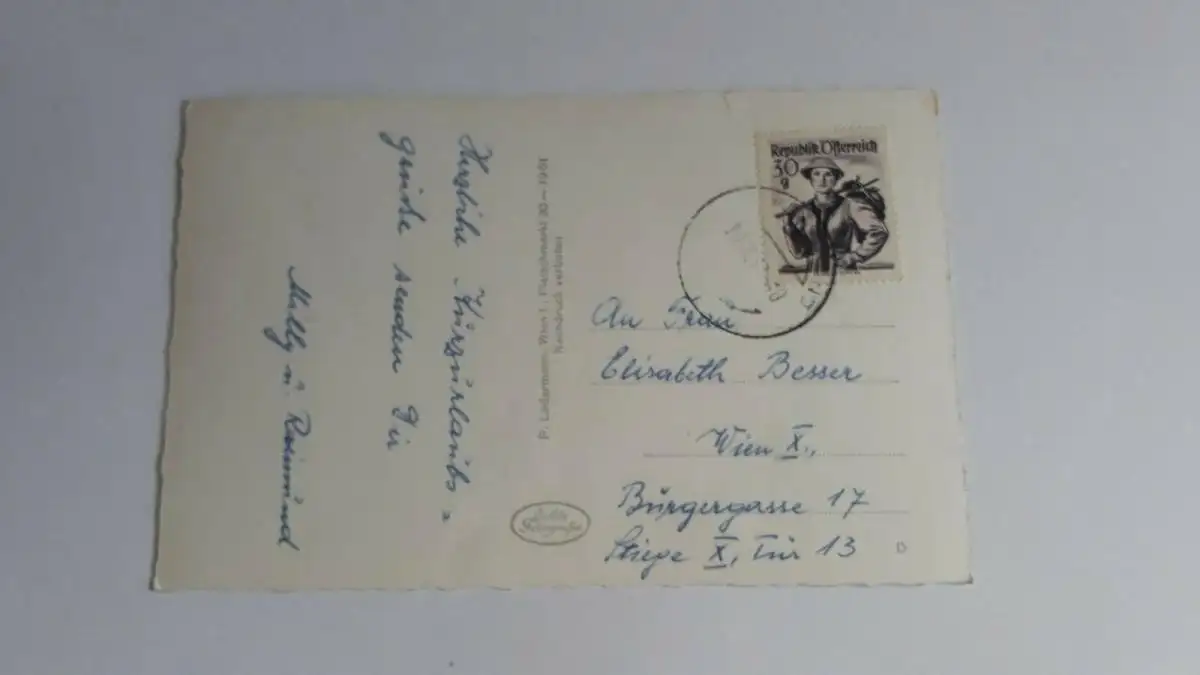 Herzliche Kürzürlaubs =
grüße senden Dir
Milly ü. Rosimünd
P. Ledermann, Wien I., Fleischmarkt 20—1961
Nachdruck verboten
Echte
Republik Österreich
30
g
An Frau
Elisabeth Besser
Wien X.,
Bürgergasse 17
Stiege X, Tür 13
D